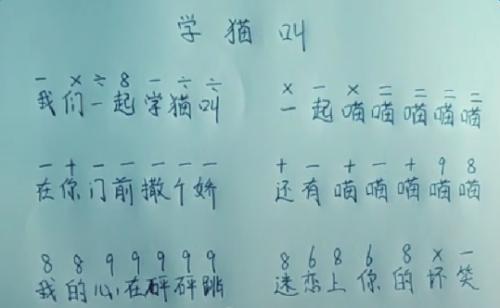 学猫叫
－ × ÷ 8 － ÷ ÷ × － × = = = =
我们一起学猫叫 一起喵喵喵喵喵
－ + － － － － － + － + － + 9 8
在你门前撒个娇 还有喵喵喵喵喵
8 8 9 9 9 9 9 8 6 8 6 8 × －
我的心在砰砰跳 迷恋上你的坏笑